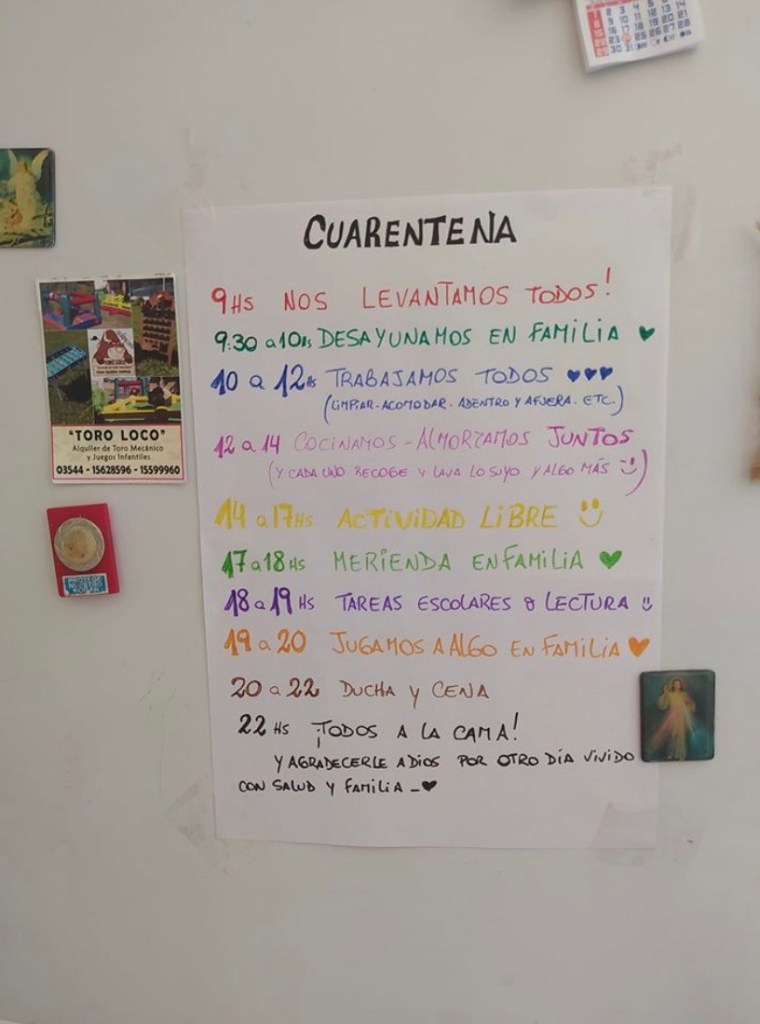 CUARENTENA
9HS NOS LEVANTAMOS TODOS!
9:30 a 10HS DESAYUNAMOS EN FAMILIA
10 a 12HS TRABAJAMOS TODOS
(LIMPIAR-ACOMODAR. ADENTRO Y AFUERA. ETC.)
12 a 14 COCINAMOS-ALMORZAMOS JUNTOS
(Y CADA UNO RECOGE Y LAVA LO SUYO Y ALGO MÁS)
14 a 17HS ACTIVIDAD LIBRE
17 a 18HS MERIENDA EN FAMILIA
18 a 19HS TAREAS ESCOLARES O LECTURA
19 a 20 JUGAMOS A ALGO EN FAMILIA
20 a 22 DUCHA Y CENA
22 HS ¡TODOS A LA CAMA!
Y AGRADECERLE A DIOS POR OTRO DÍA VIVIDO
CON SALUD Y FAMILIA_
"TORO LOCO"
Alquiler de Toro Mecánico
y Juegos Infantiles
03544 - 15628596 - 15599960